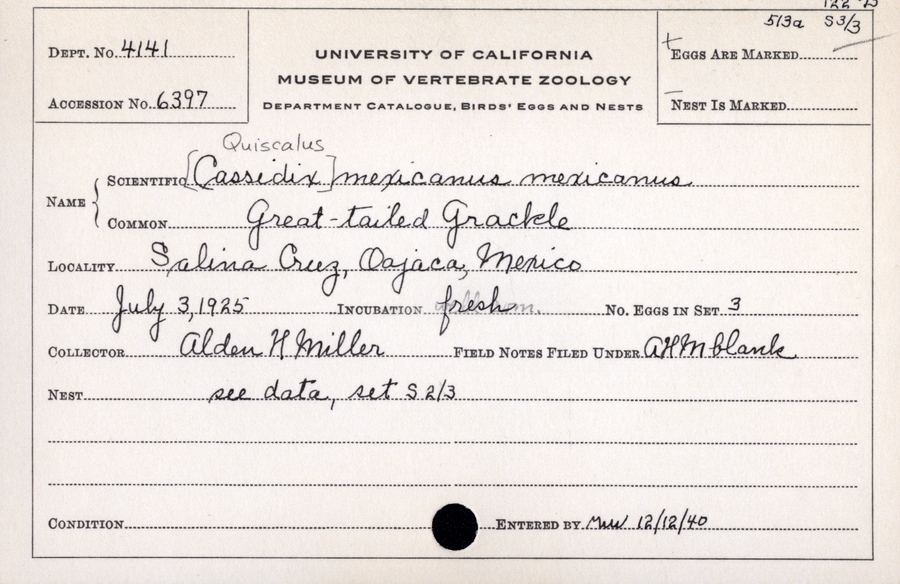 513a S3/3
DEPT. No. 4141
UNIVERSITY OF CALIFORNIA
MUSEUM OF VERTEBRATE ZOOLOGY
DEPARTMENT CATALOGUE, BIRDS' EGGS AND NESTS
+
EGGS ARE MARKED
ACCESSION No. 6397
–
NEST IS MARKED
Quiscalus
NAME
SCIENTIFIC [Cassidix] mexicanus mexicanus
COMMON Great-tailed Grackle
LOCALITY Salina Cruz, Oajaca, Mexico
DATE July 3, 1925 INCUBATION fresh No. EGGS IN SET 3
COLLECTOR Alden H Miller FIELD NOTES FILED UNDER AHM blank
NEST see data, set S 2/3
CONDITION ENTERED BY 12/12/40